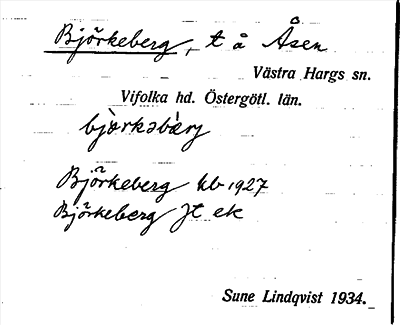 Björkeberg, t å Åsen
Västra Hargs sn.
Vifolka hd. Östergötl. län.
bjærkəbærj
Björkeberg kb 1927
Björkeberg Jt ek
Sune Lindqvist 1934.